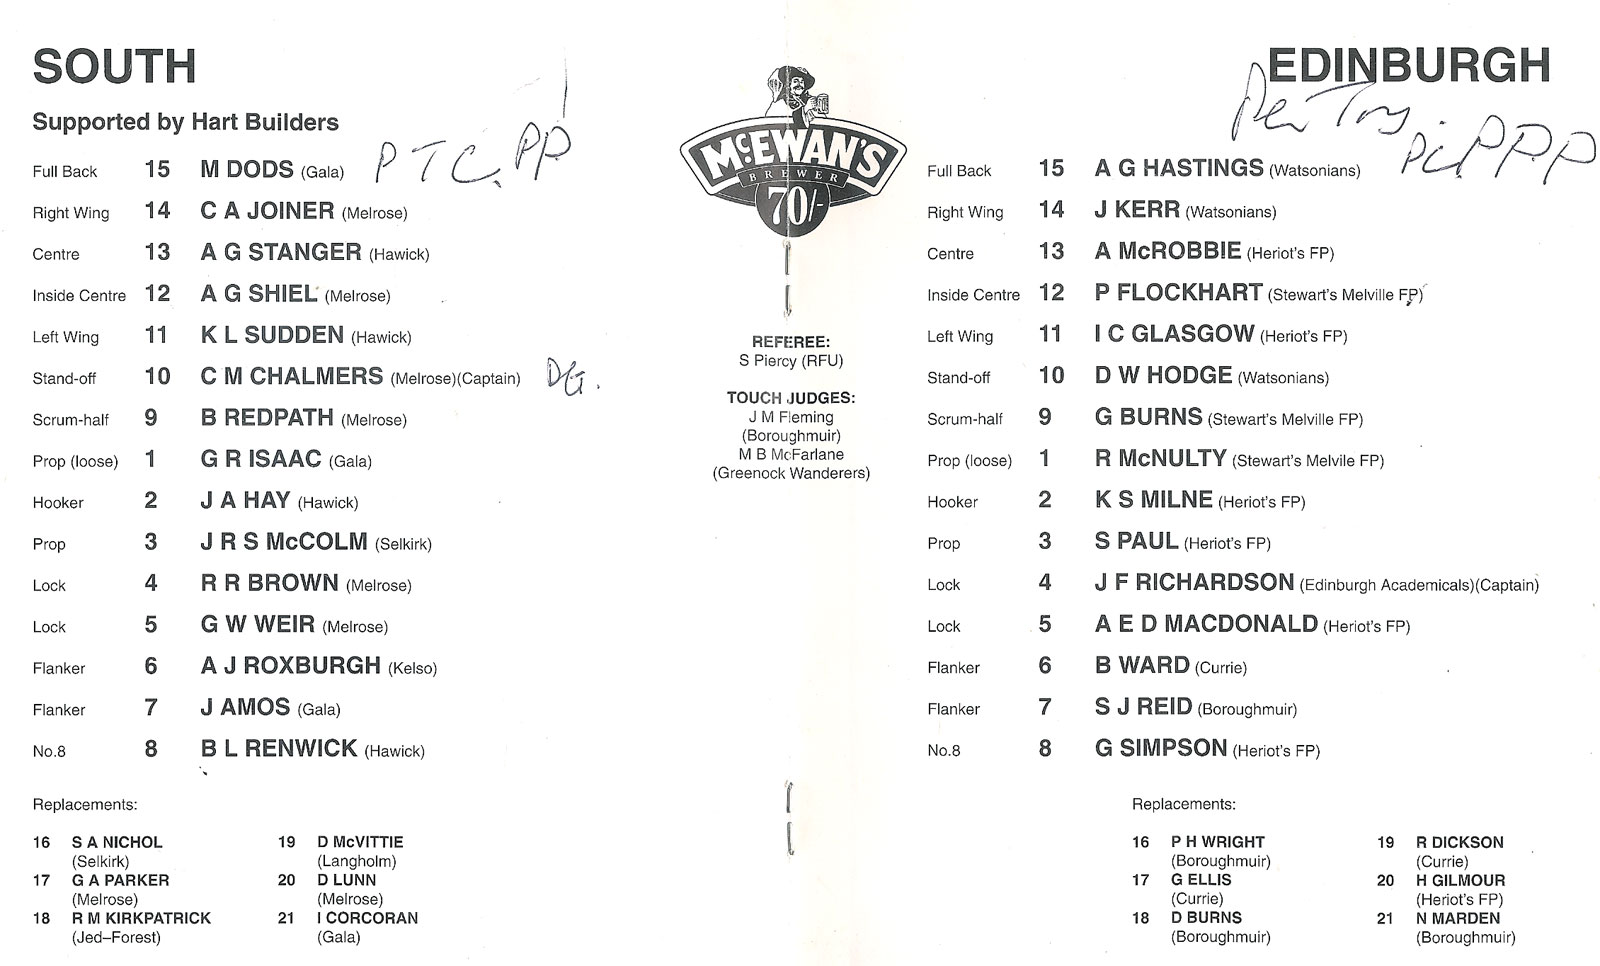 SOUTH
Supported by Hart Builders
P T C. PP
Full Back 15 M DODS (Gala)
Right Wing 14 C A JOINER (Melrose)
Centre 13 A G STANGER (Hawick)
Inside Centre 12 A G SHIEL (Melrose)
Left Wing 11 K L SUDDEN (Hawick)
Stand-off 10 C M CHALMERS (Melrose)(Captain) DG.
Scrum-half 9 B REDPATH (Melrose)
Prop (loose) 1 G R ISAAC (Gala)
Hooker 2 J A HAY (Hawick)
Prop 3 J R S McCOLM (Selkirk)
Lock 4 R R BROWN (Melrose)
Lock 5 G W WEIR (Melrose)
Flanker 6 A J ROXBURGH (Kelso)
Flanker 7 J AMOS (Gala)
No.8 8 B L RENWICK (Hawick)
Replacements:
16 S A NICHOL
(Selkirk)
17 G A PARKER
(Melrose)
18 R M KIRKPATRICK
(Jed–Forest)
19 D McVITTIE
(Langholm)
20 D LUNN
(Melrose)
21 I CORCORAN
(Gala)
McEWAN'S
BREWER
70/-
REFEREE:
S Piercy (RFU)
TOUCH JUDGES:
J M Fleming
(Boroughmuir)
M B McFarlane
(Greenock Wanderers)
EDINBURGH
Pen Try
PC.PPP
Full Back 15 A G HASTINGS (Watsonians)
Right Wing 14 J KERR (Watsonians)
Centre 13 A McROBBIE (Heriot's FP)
Inside Centre 12 P FLOCKHART (Stewart's Melville FP)
Left Wing 11 I C GLASGOW (Heriot's FP)
Stand-off 10 D W HODGE (Watsonians)
Scrum-half 9 G BURNS (Stewart's Melville FP)
Prop (loose) 1 R McNULTY (Stewart's Melvile FP)
Hooker 2 K S MILNE (Heriot's FP)
Prop 3 S PAUL (Heriot's FP)
Lock 4 J F RICHARDSON (Edinburgh Academicals)(Captain)
Lock 5 A E D MACDONALD (Heriot's FP)
Flanker 6 B WARD (Currie)
Flanker 7 S J REID (Boroughmuir)
No.8 8 G SIMPSON (Heriot's FP)
Replacements:
16 P H WRIGHT
(Boroughmuir)
17 G ELLIS
(Currie)
18 D BURNS
(Boroughmuir)
19 R DICKSON
(Currie)
20 H GILMOUR
(Heriot's FP)
21 N MARDEN
(Boroughmuir)